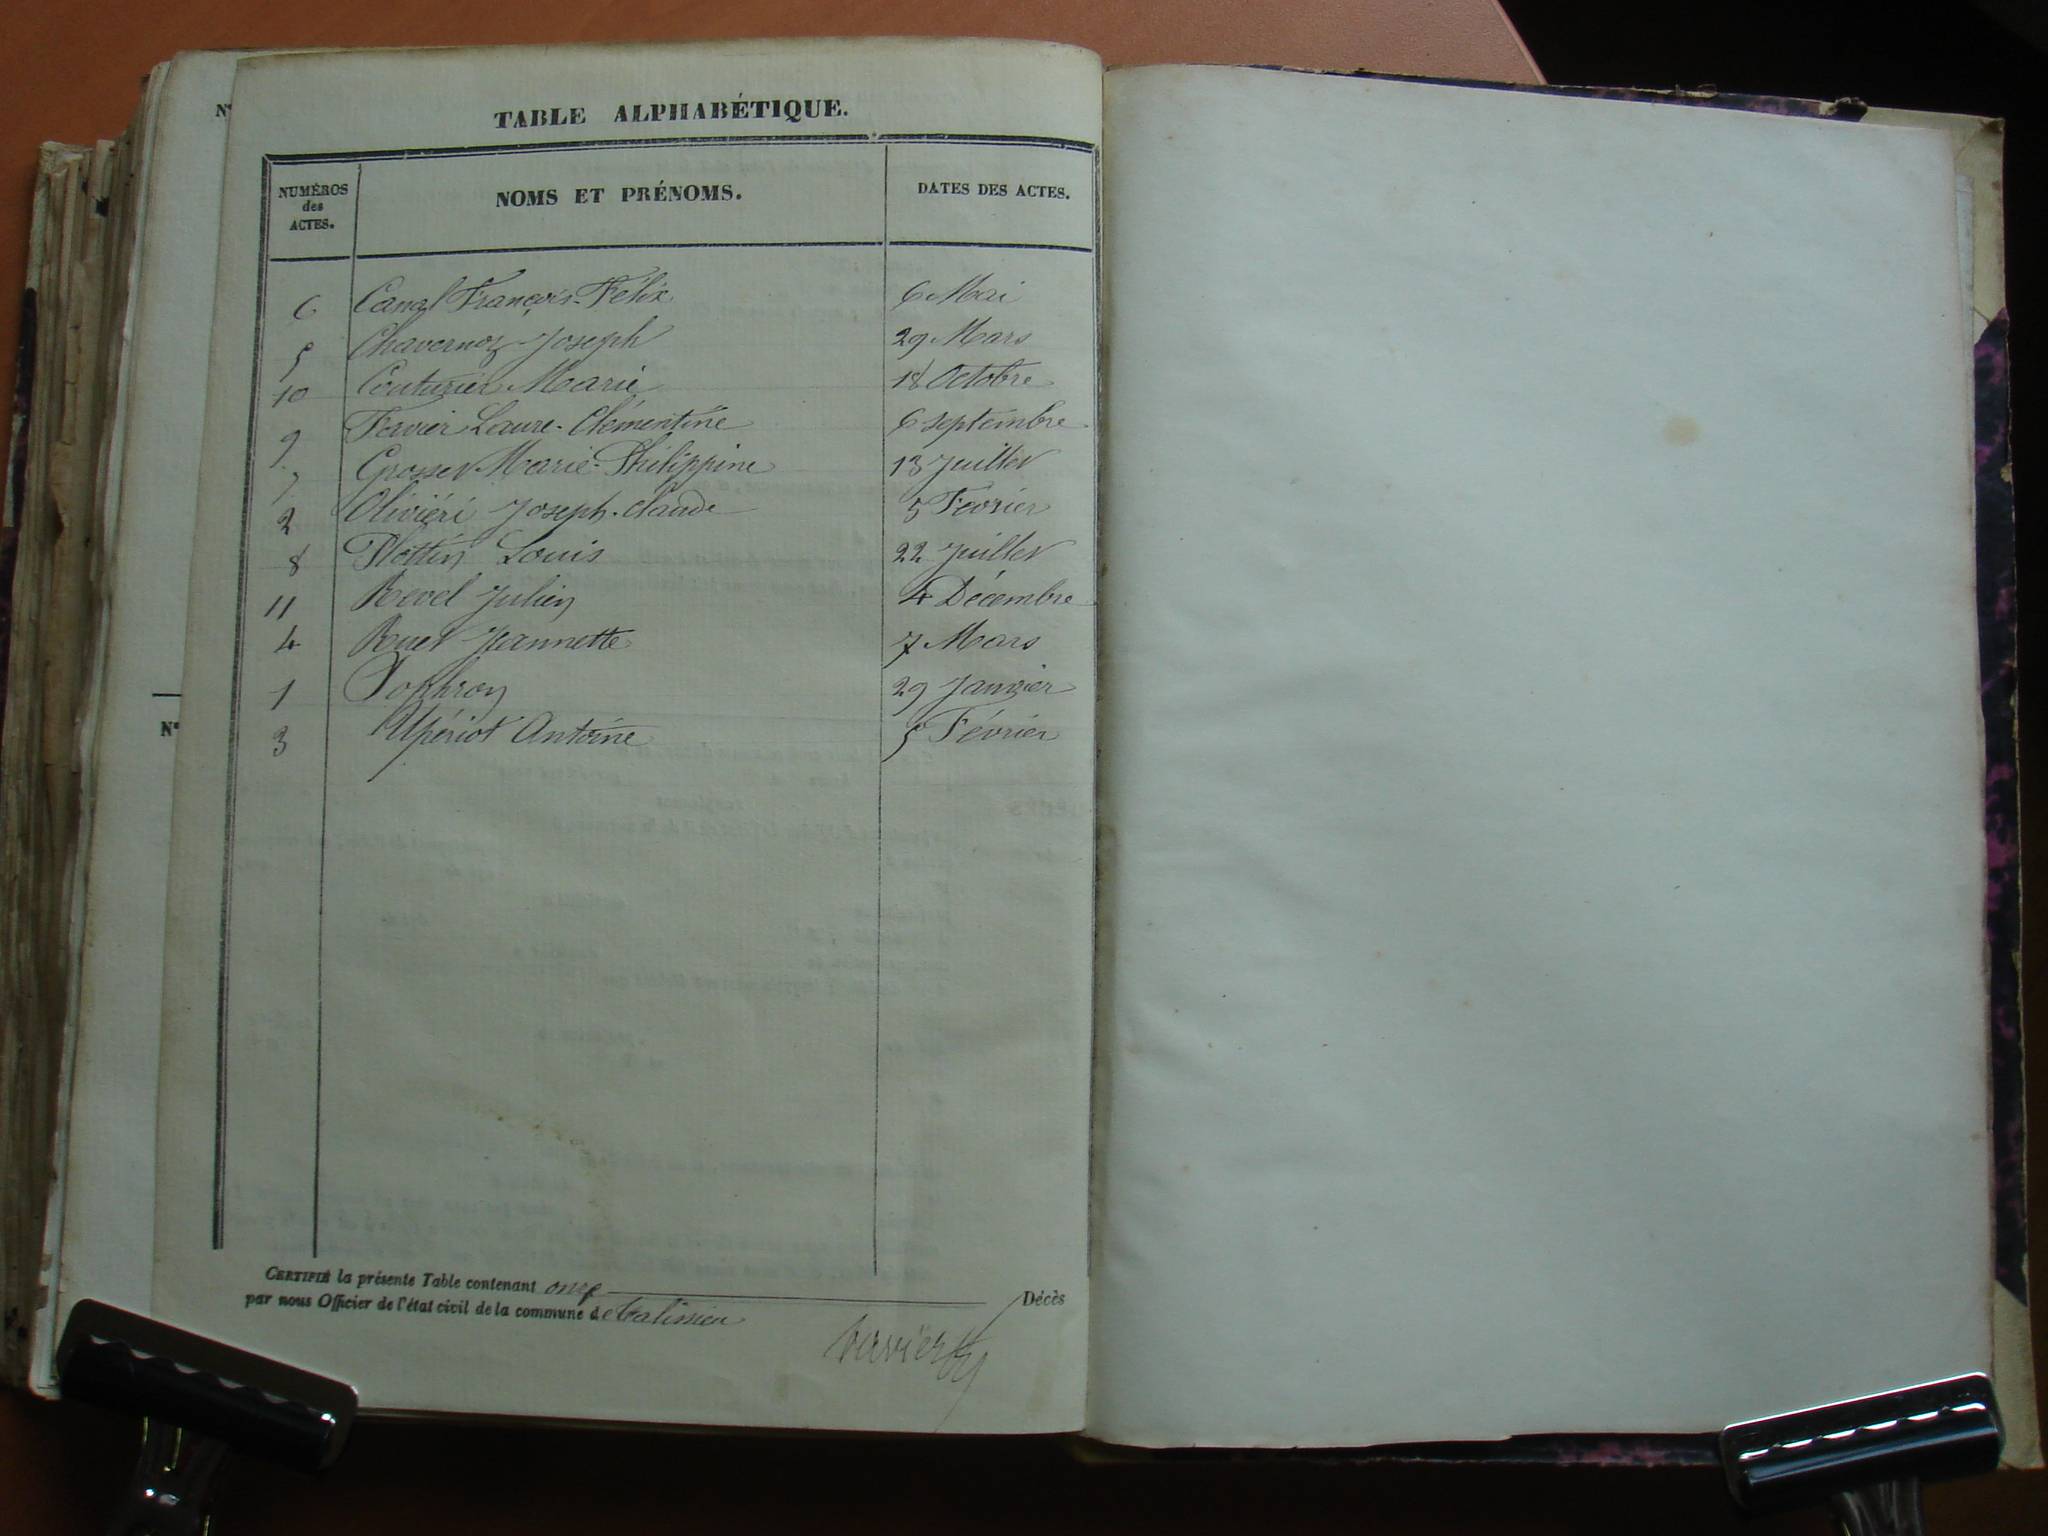 N°
TABLE ALPHABÉTIQUE.
NUMÉROS
des
ACTES.
NOMS ET PRÉNOMS.
DATES DES ACTES.
6 Canal François-Félix 6 Mai
5 Chavernoz Joseph 29 Mars
10 Couturier Marie 18 Octobre
9 Fervier Laure-Clémentine 6 septembre
7 Grosset Marie-Philippine 13 Juillet
2 Oliviéri Joseph-claude 5 Février
8 Plottin Louis 22 Juillet
11 Revel Julien 4 Décembre
4 Ruet Jeannette 7 Mars
1 Sophron 29 Janvier
3 Upériot Antoine 5 Février
N°
CERTIFIÉ la présente Table contenant onze Décès
par nous Officier de l'état civil de la commune de